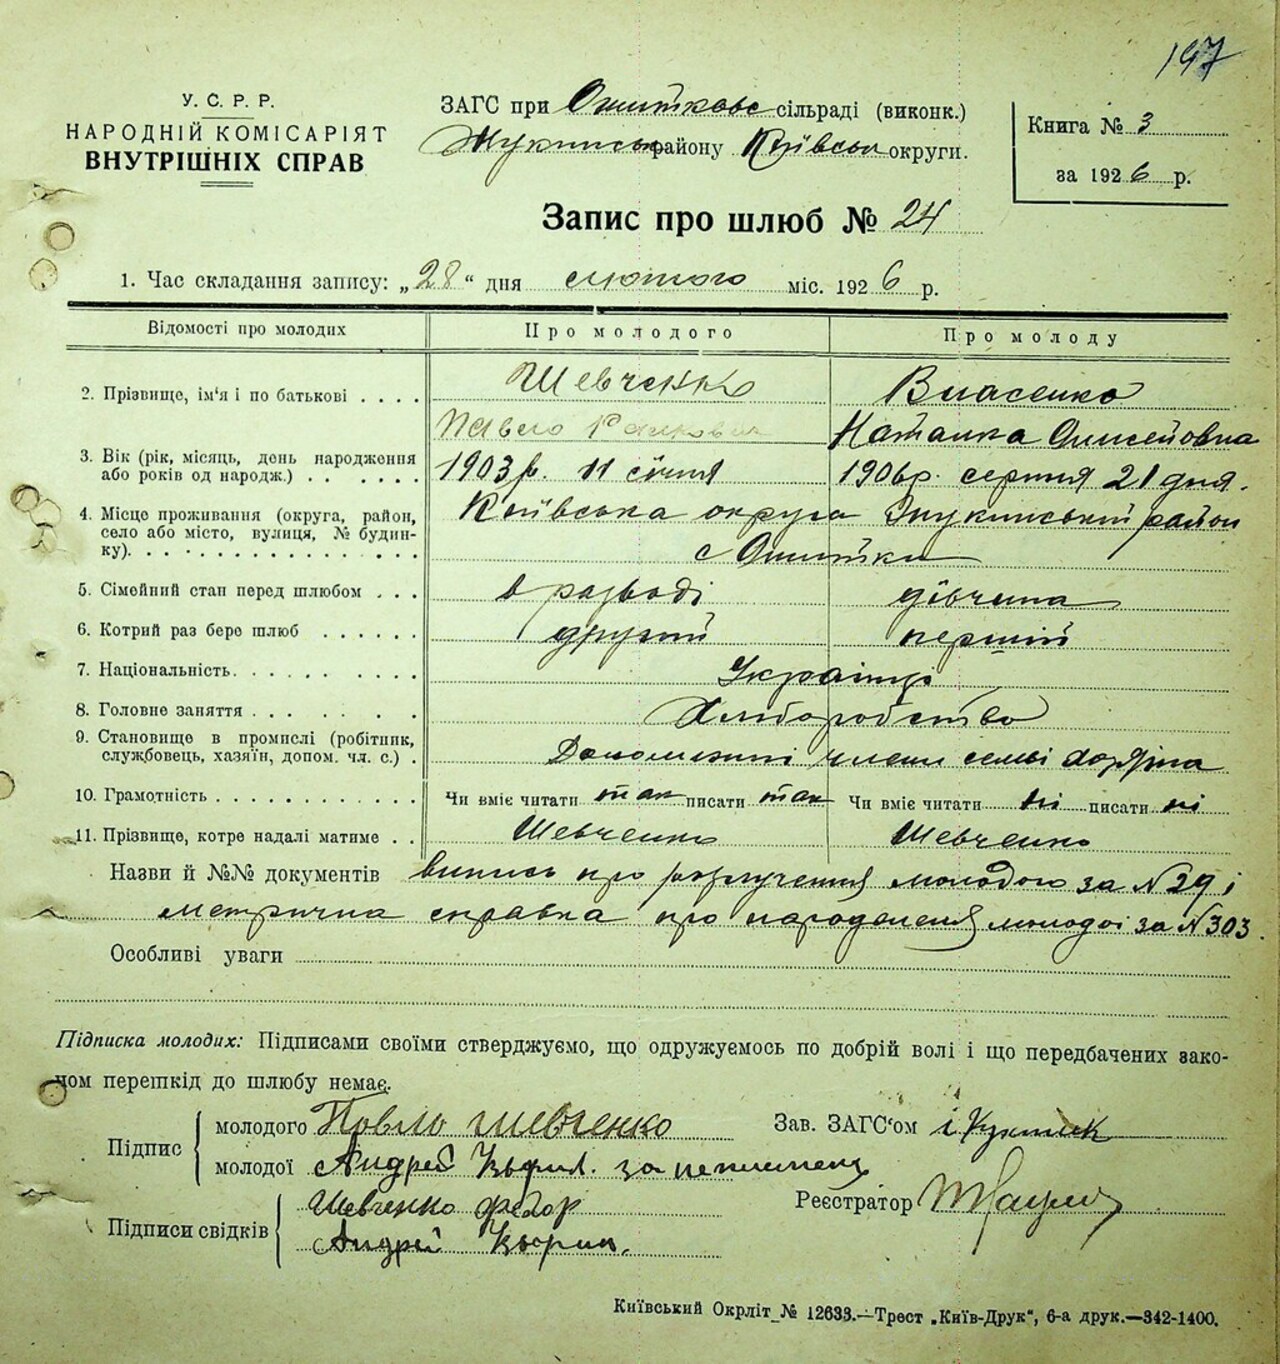 197
У. С. Р. Р.
НАРОДНІЙ КОМІСАРІЯТ
ВНУТРІШНІХ СПРАВ
ЗАГС при Ошитковс сільраді (виконк.)
району Київськ округи.
Книга № 3
за 1926 р.
Запис про шлюб № 24
1. Час складання запису: „28“ дня лютого міс. 1926 р.
Відомості про молодих Про молодого Про молоду
2. Прізвище, ім'я і по батькові . . . . Шевченко Власенко
Павло Наталка Олисейовна
3. Вік (рік, місяць, день народження
або років од народж.) . . . . . . 1903 р. 11 січня 1906 р. серпня 21 дня.
4. Місце проживання (округа, район,
село або місто, вулиця, № будин-
ку). . . . . . . . . . . . . . . Київська округа район
с Ошитки
5. Сімейний стан перед шлюбом . . . в разводі дівчина
6. Котрий раз бере шлюб . . . . . . другий перший
7. Національність. . . . . . . . . . Українці
8. Головне заняття . . . . . . . Хліборобство
9. Становище в промислі (робітник,
службовець, хазяїн, допом. чл. с.) . члени семьі
10. Грамотність . . . . . . . . . . . Чи вміє читати так писати так Чи вміє читати ні писати ні
11. Прізвище, котре надалі матиме . . Шевченко Шевченко
Назви й №№ документів випись про розлучення молодого за № 29 і
метрична справка про народження молодої за № 303.
Особливі уваги
Підписка молодих: Підписами своїми стверджуємо, що одружуємось по добрій волі і що передбачених зако-
ном перешкід до шлюбу немає.
Підпис
молодого Павло Шевченко
молодої Андрей за неписмену
Зав. ЗАГС'ом
Підписи свідків
Шевченко Федор
Андрей
Реєстратор
Київський Окрліт № 12633.—Трест „Київ-Друк“, 6-а друк.—342-1400.